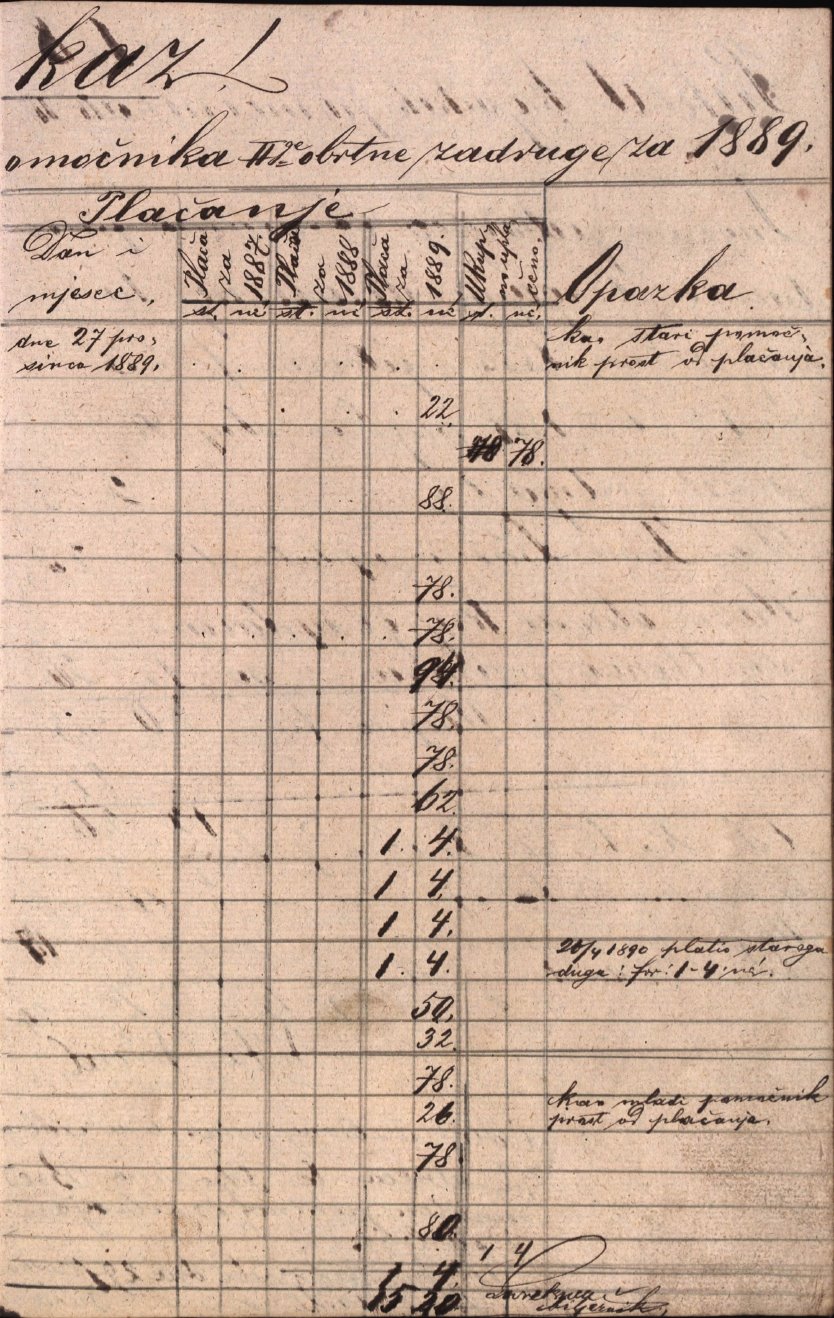 kaz!
omočnika II ge obrtne zadruge za 1889.
Plačanje
Dan i
mjesec,
Plaća za 1887
Plaća za 1888
Plaća za 1889.
Ukup no upla ćeno.
Opazka
st. nč. st. nč st. nč. st. nč.
dne 27 pro-
sinca 1889.
kao stari pomoć-
nik prost od plaćanja.
22
78 78.
88.
78.
78.
94.
78.
78.
62
1. 4.
1 4.
1 4.
1. 4.
26/4 1890 platio staroga
duga: for: 1-4 nč.
50.
32.
78.
26.
kao mladi pomoćnik
prost od plaćanja.
78.
80.
1 4
1 4.
15 20